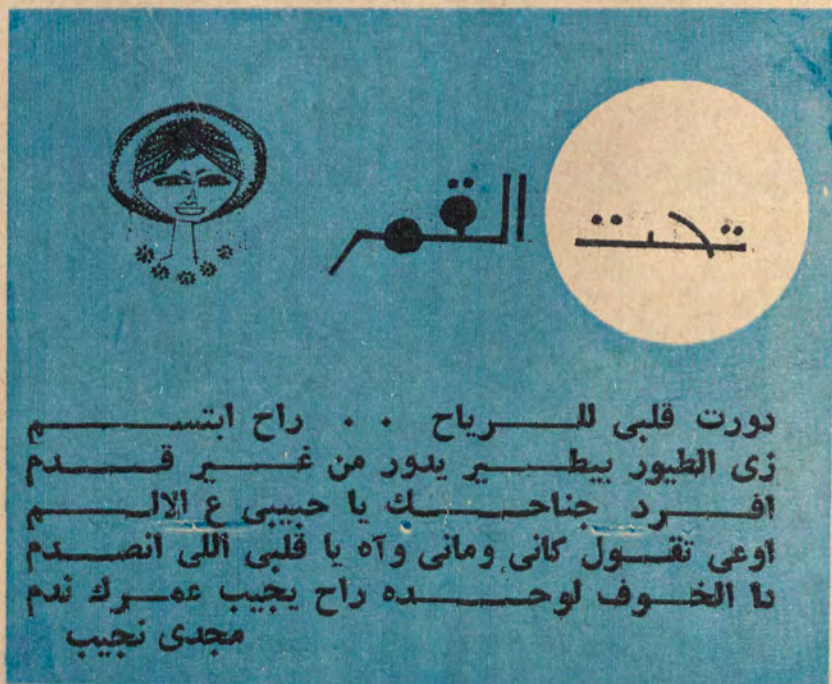 تحت القمر
دورت قلبى للرياح . . راح ابتسم
زى الطيور بيطير يدور من غير قدم
افرد جناحك يا حبيبى ع الالم
اوعى تقول كانى ومانى وآه يا قلبى اللى انصدم
دا الخوف لوحده راح يجيب عمرك ندم
مجدى نجيب